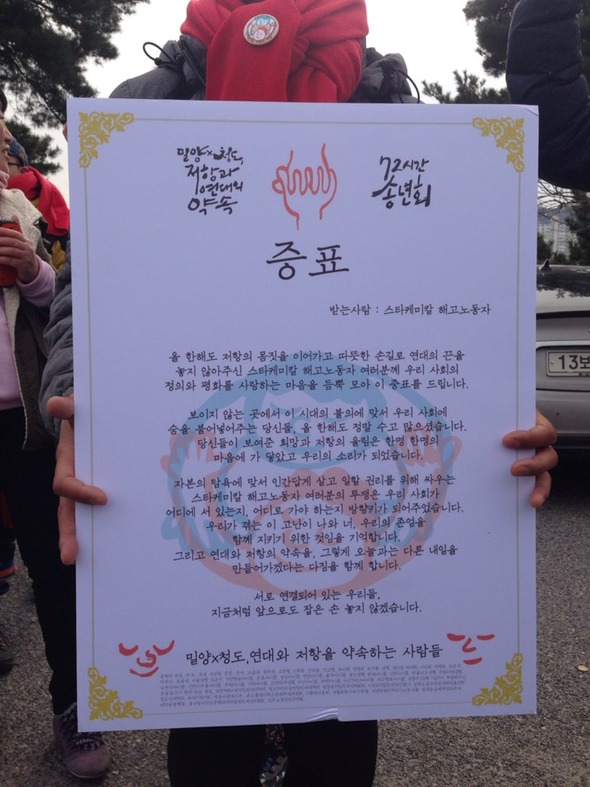 밀양x청도,
저항과
연대의
약속
72시간
송년회
증표
받는사람 : 스타케미칼 해고노동자
올 한해도 저항의 몸짓을 이어가고 따뜻한 손길로 연대의 끈을
놓지 않아주신 스타케미칼 해고노동자 여러분께 우리 사회의
정의와 평화를 사랑하는 마음을 듬뿍 모아 이 증표를 드립니다.
보이지 않는 곳에서 이 시대의 불의에 맞서 우리 사회에
숨을 불어넣어주는 당신들, 올 한해도 정말 수고 많으셨습니다.
당신들이 보여준 희망과 저항의 울림은 한명 한명의
마음에 가 닿았고 우리의 소리가 되었습니다.
자본의 탐욕에 맞서 인간답게 살고 일할 권리를 위해 싸우는
스타케미칼 해고노동자 여러분의 투쟁은 우리 사회가
어디에 서 있는지, 어디로 가야 하는지 방향키가 되어주었습니다.
우리가 겪는 이 고난이 나와 너, 우리의 존엄을
함께 지키기 위한 것임을 기억합니다.
그리고 연대와 저항의 약속을, 그렇게 오늘과는 다른 내일을
만들어가겠다는 다짐을 함께 합니다.
서로 연결되어 있는 우리들,
지금처럼 앞으로도 잡은 손 놓지 않겠습니다.
밀양x청도, 연대와 저항을 약속하는 사람들
13보